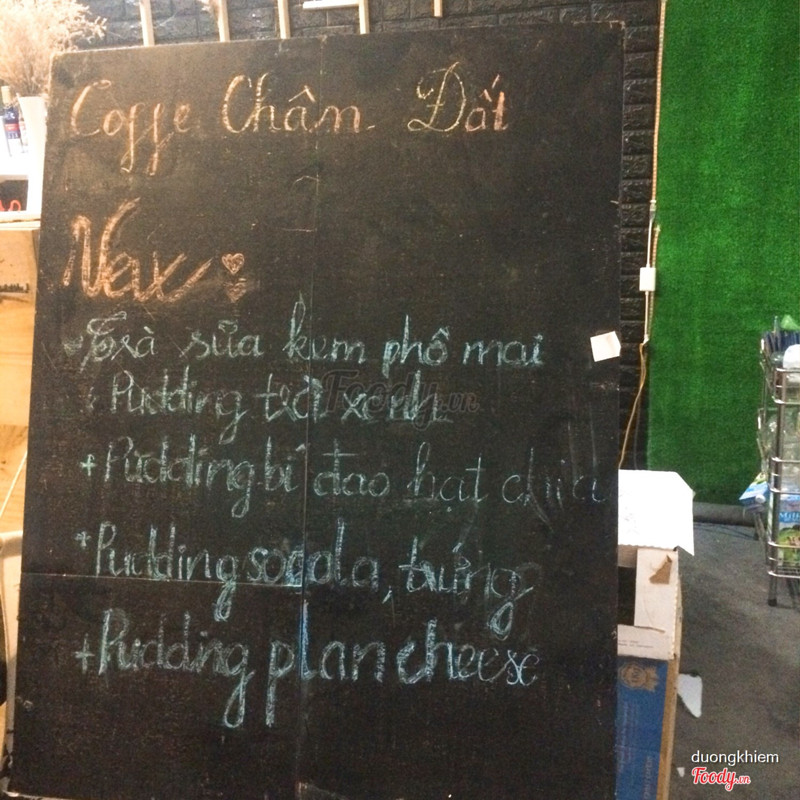 Coffe Chân Đất
New
Trà sữa kem phô mai
+ Pudding trà xanh
+ Pudding bí đao hạt chia
* Pudding socola, trứng
+ Pudding plan cheese
Foody.vn
duongkhiem
Foody.vn